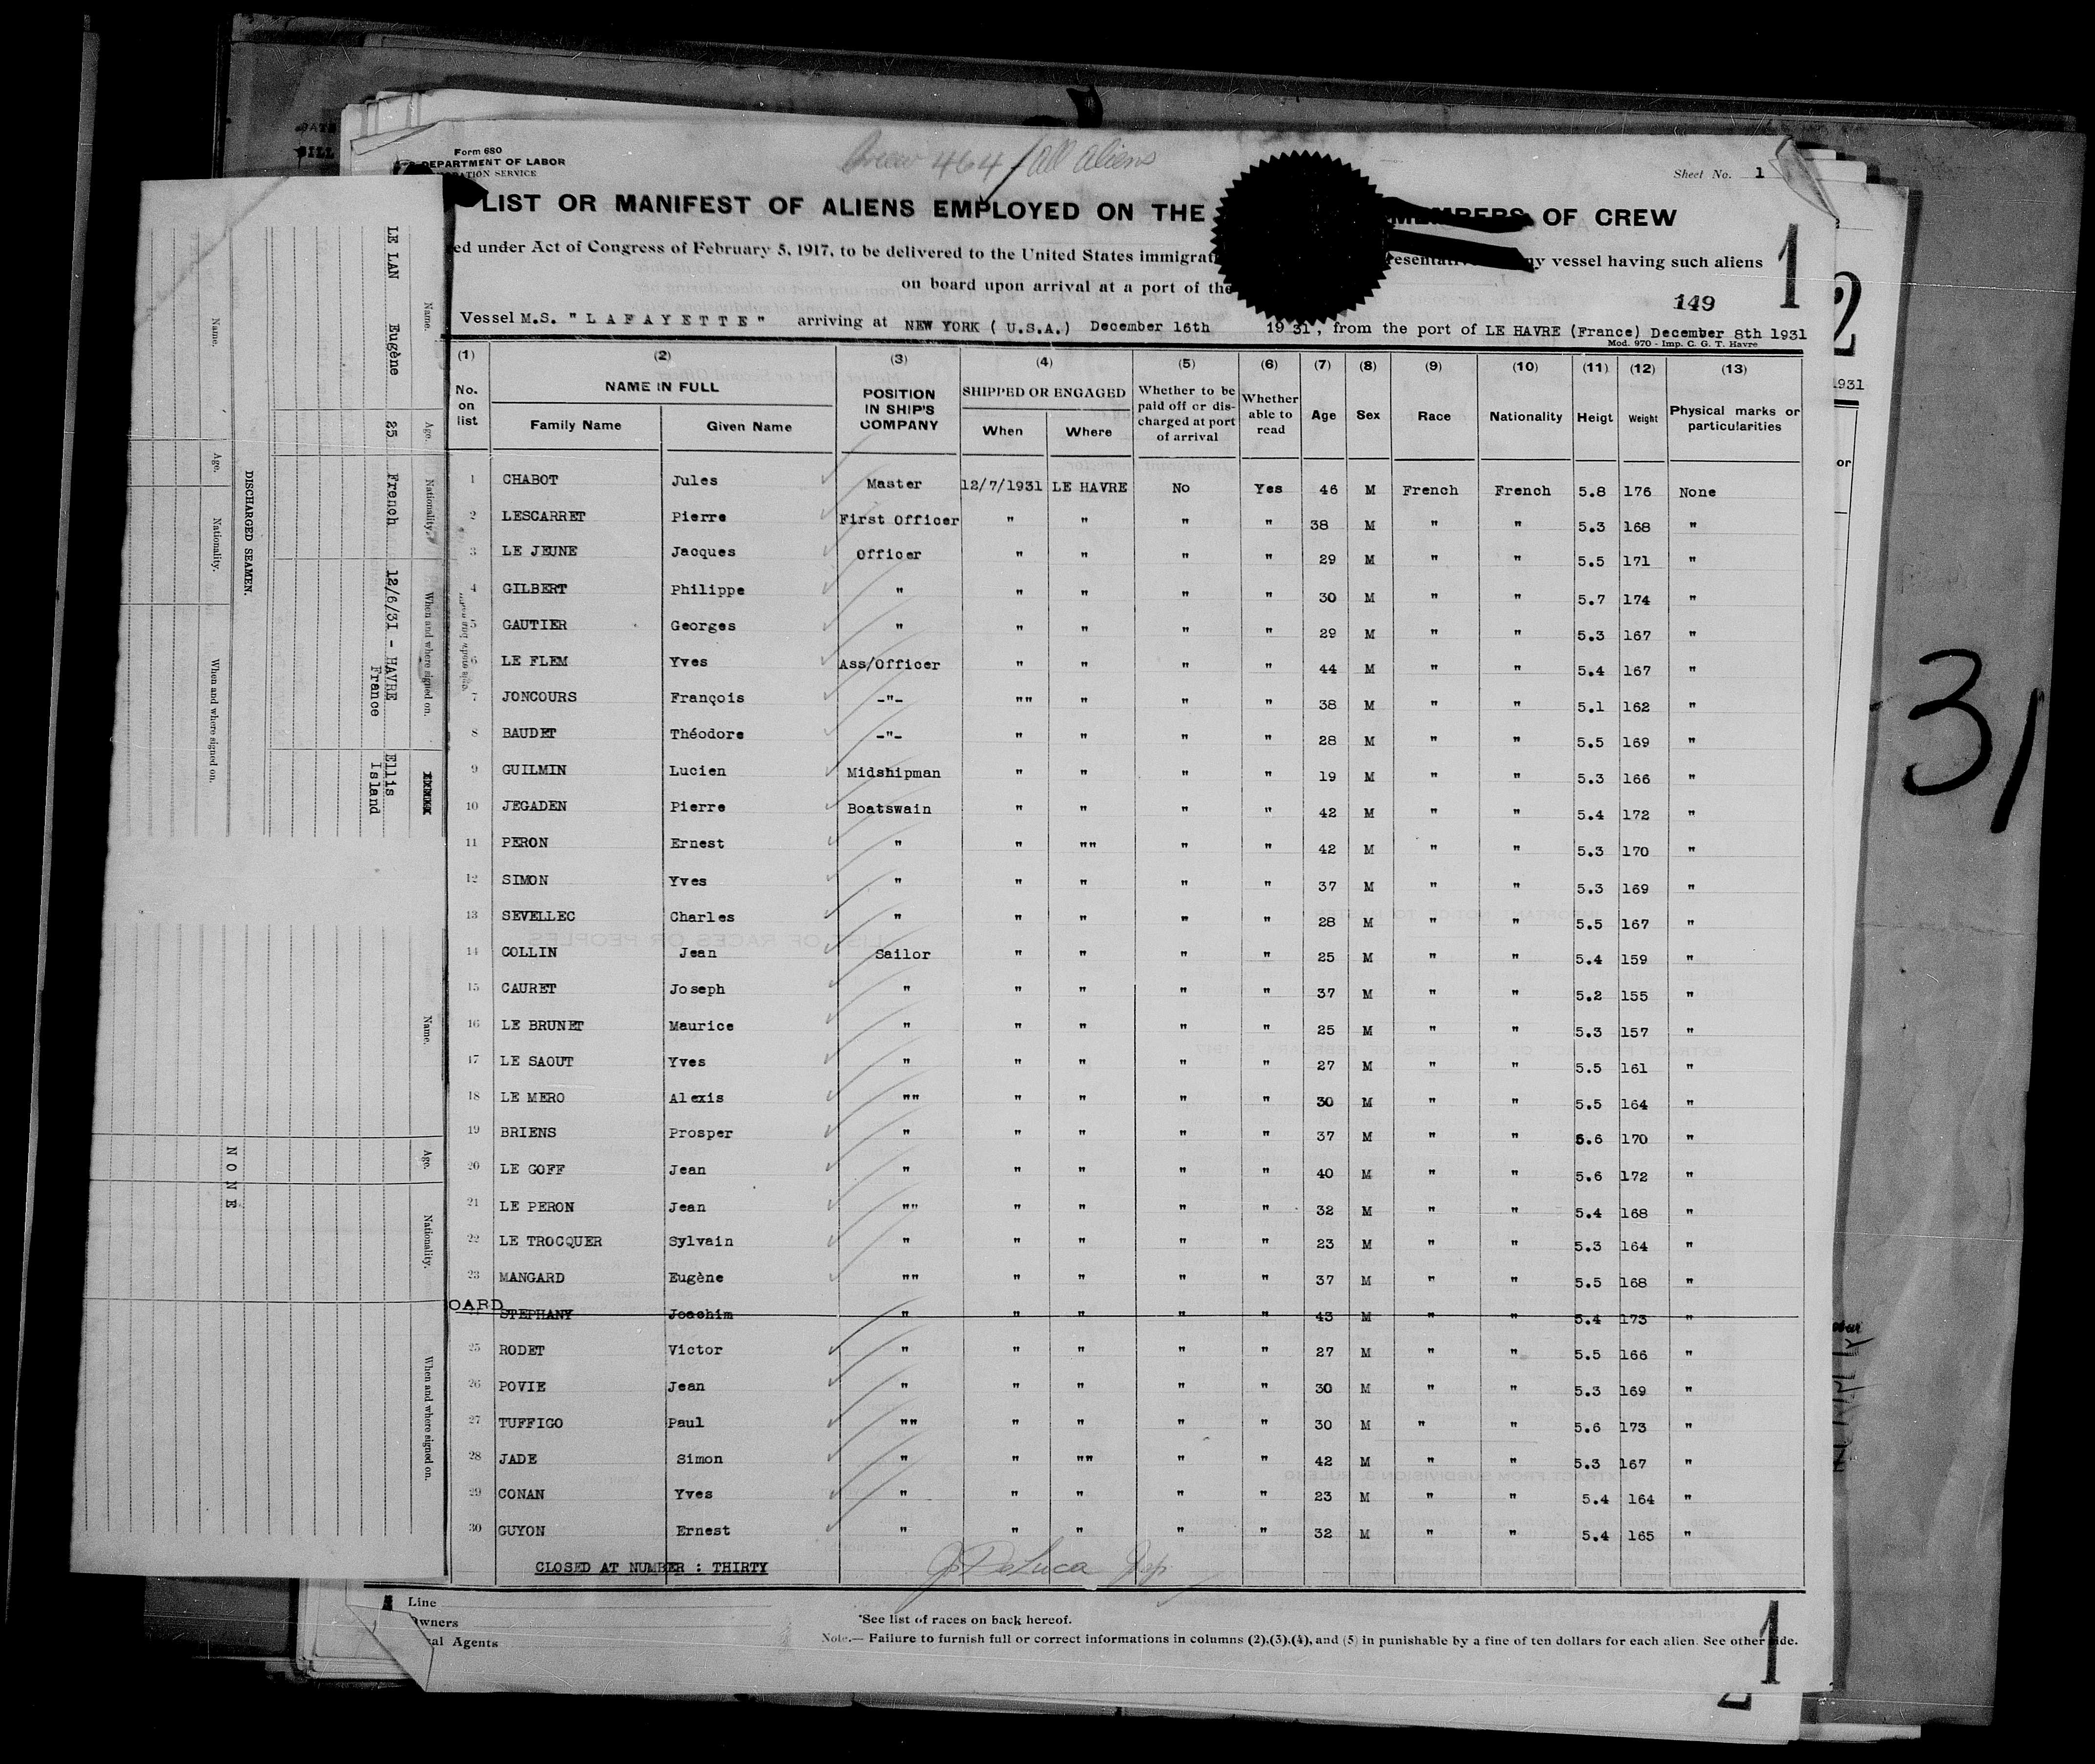 Form 680
DEPARTMENT OF LABOR
Crew 464 / All aliens
Sheet No. 1
LIST OR MANIFEST OF ALIENS EMPLOYED ON THE MEMBERS OF CREW
ed under Act of Congress of February 5, 1917, to be delivered to the United States immigrat any vessel having such aliens
on board upon arrival at a port of the
149
1
2
Vessel M.S. "LAFAYETTE" arriving at NEW YORK (U.S.A.) December 16th 1931, from the port of LE HAVRE (France) December 8th 1931
Mod. 970 - Imp. C. G. T. Havre
1931
(1) (2) (3) (4) (5) (6) (7) (8) (9) (10) (11) (12) (13)
No. on list NAME IN FULL Family Name Given Name POSITION IN SHIP'S COMPANY SHIPPED OR ENGAGED When Where Whether to be paid off or discharged at port of arrival Whether able to read Age Sex Race Nationality Heigt Weight Physical marks or particularities
1 CHABOT Jules Master 12/7/1931 LE HAVRE No Yes 46 M French French 5.8 176 None
2 LESCARRET Pierre First Officer " " " " 38 M " " 5.3 168 "
3 LE JEUNE Jacques Officer " " " " 29 M " " 5.5 171 "
4 GILBERT Philippe " " " " " 30 M " " 5.7 174 "
5 GAUTIER Georges " " " " " 29 M " " 5.3 167 "
6 LE FLEM Yves Ass/Officer " " " " 44 M " " 5.4 167 "
7 JONCOURS François -"- "" " " " 38 M " " 5.1 162 "
8 BAUDET Théodore -"- " " " " 28 M " " 5.5 169 "
9 GUILMIN Lucien Midshipman " " " " 19 M " " 5.3 166 "
10 JEGADEN Pierre Boatswain " " " " 42 M " " 5.4 172 "
11 PERON Ernest " " "" " " 42 M " " 5.3 170 "
12 SIMON Yves " " " " " 37 M " " 5.3 169 "
13 SEVELLEC Charles " " " " " 28 M " " 5.5 167 "
14 COLLIN Jean Sailor " " " " 25 M " " 5.4 159 "
15 CAURET Joseph " " " " " 37 M " " 5.2 155 "
16 LE BRUNET Maurice " " " " " 25 M " " 5.3 157 "
17 LE SAOUT Yves " " " " " 27 M " " 5.5 161 "
18 LE MERO Alexis "" " " " " 30 M " " 5.5 164 "
19 BRIENS Prosper " " " " " 37 M " " 5.6 170 "
20 LE GOFF Jean " " " " " 40 M " " 5.6 172 "
21 LE PERON Jean "" " " " " 32 M " " 5.4 168 "
22 LE TROCQUER Sylvain " " " " " 23 M " " 5.3 164 "
23 MANGARD Eugène "" " " " " 37 M " " 5.5 168 "
OARD STEPHANY Joachim " " " " " 43 M " " 5.4 173 "
25 RODET Victor " " " " " 27 M " " 5.5 166 "
26 POVIE Jean " " " " " 30 M " " 5.3 169 "
27 TUFFIGO Paul "" " " " " 30 M " " 5.6 173 "
28 JADE Simon " " "" " " 42 M " " 5.3 167 "
29 CONAN Yves " " " " " 23 M " " 5.4 164 "
30 GUYON Ernest " " " " " 32 M " " 5.4 165 "
CLOSED AT NUMBER : THIRTY
J. DeLuca Insp
Line
Owners
Agents
*See list of races on back hereof.
Note.— Failure to furnish full or correct informations in columns (2),(3),(4), and (5) in punishable by a fine of ten dollars for each alien. See other side.
1
31
Name. Age. Nationality. When and where signed on.
LE LAN Eugène 25 French 12/6/31 - HAVRE Ellis
France Island
DISCHARGED SEAMEN.
Name. Age. Nationality. When and where signed on.
Name. Age. Nationality. When and where signed on.
NONE